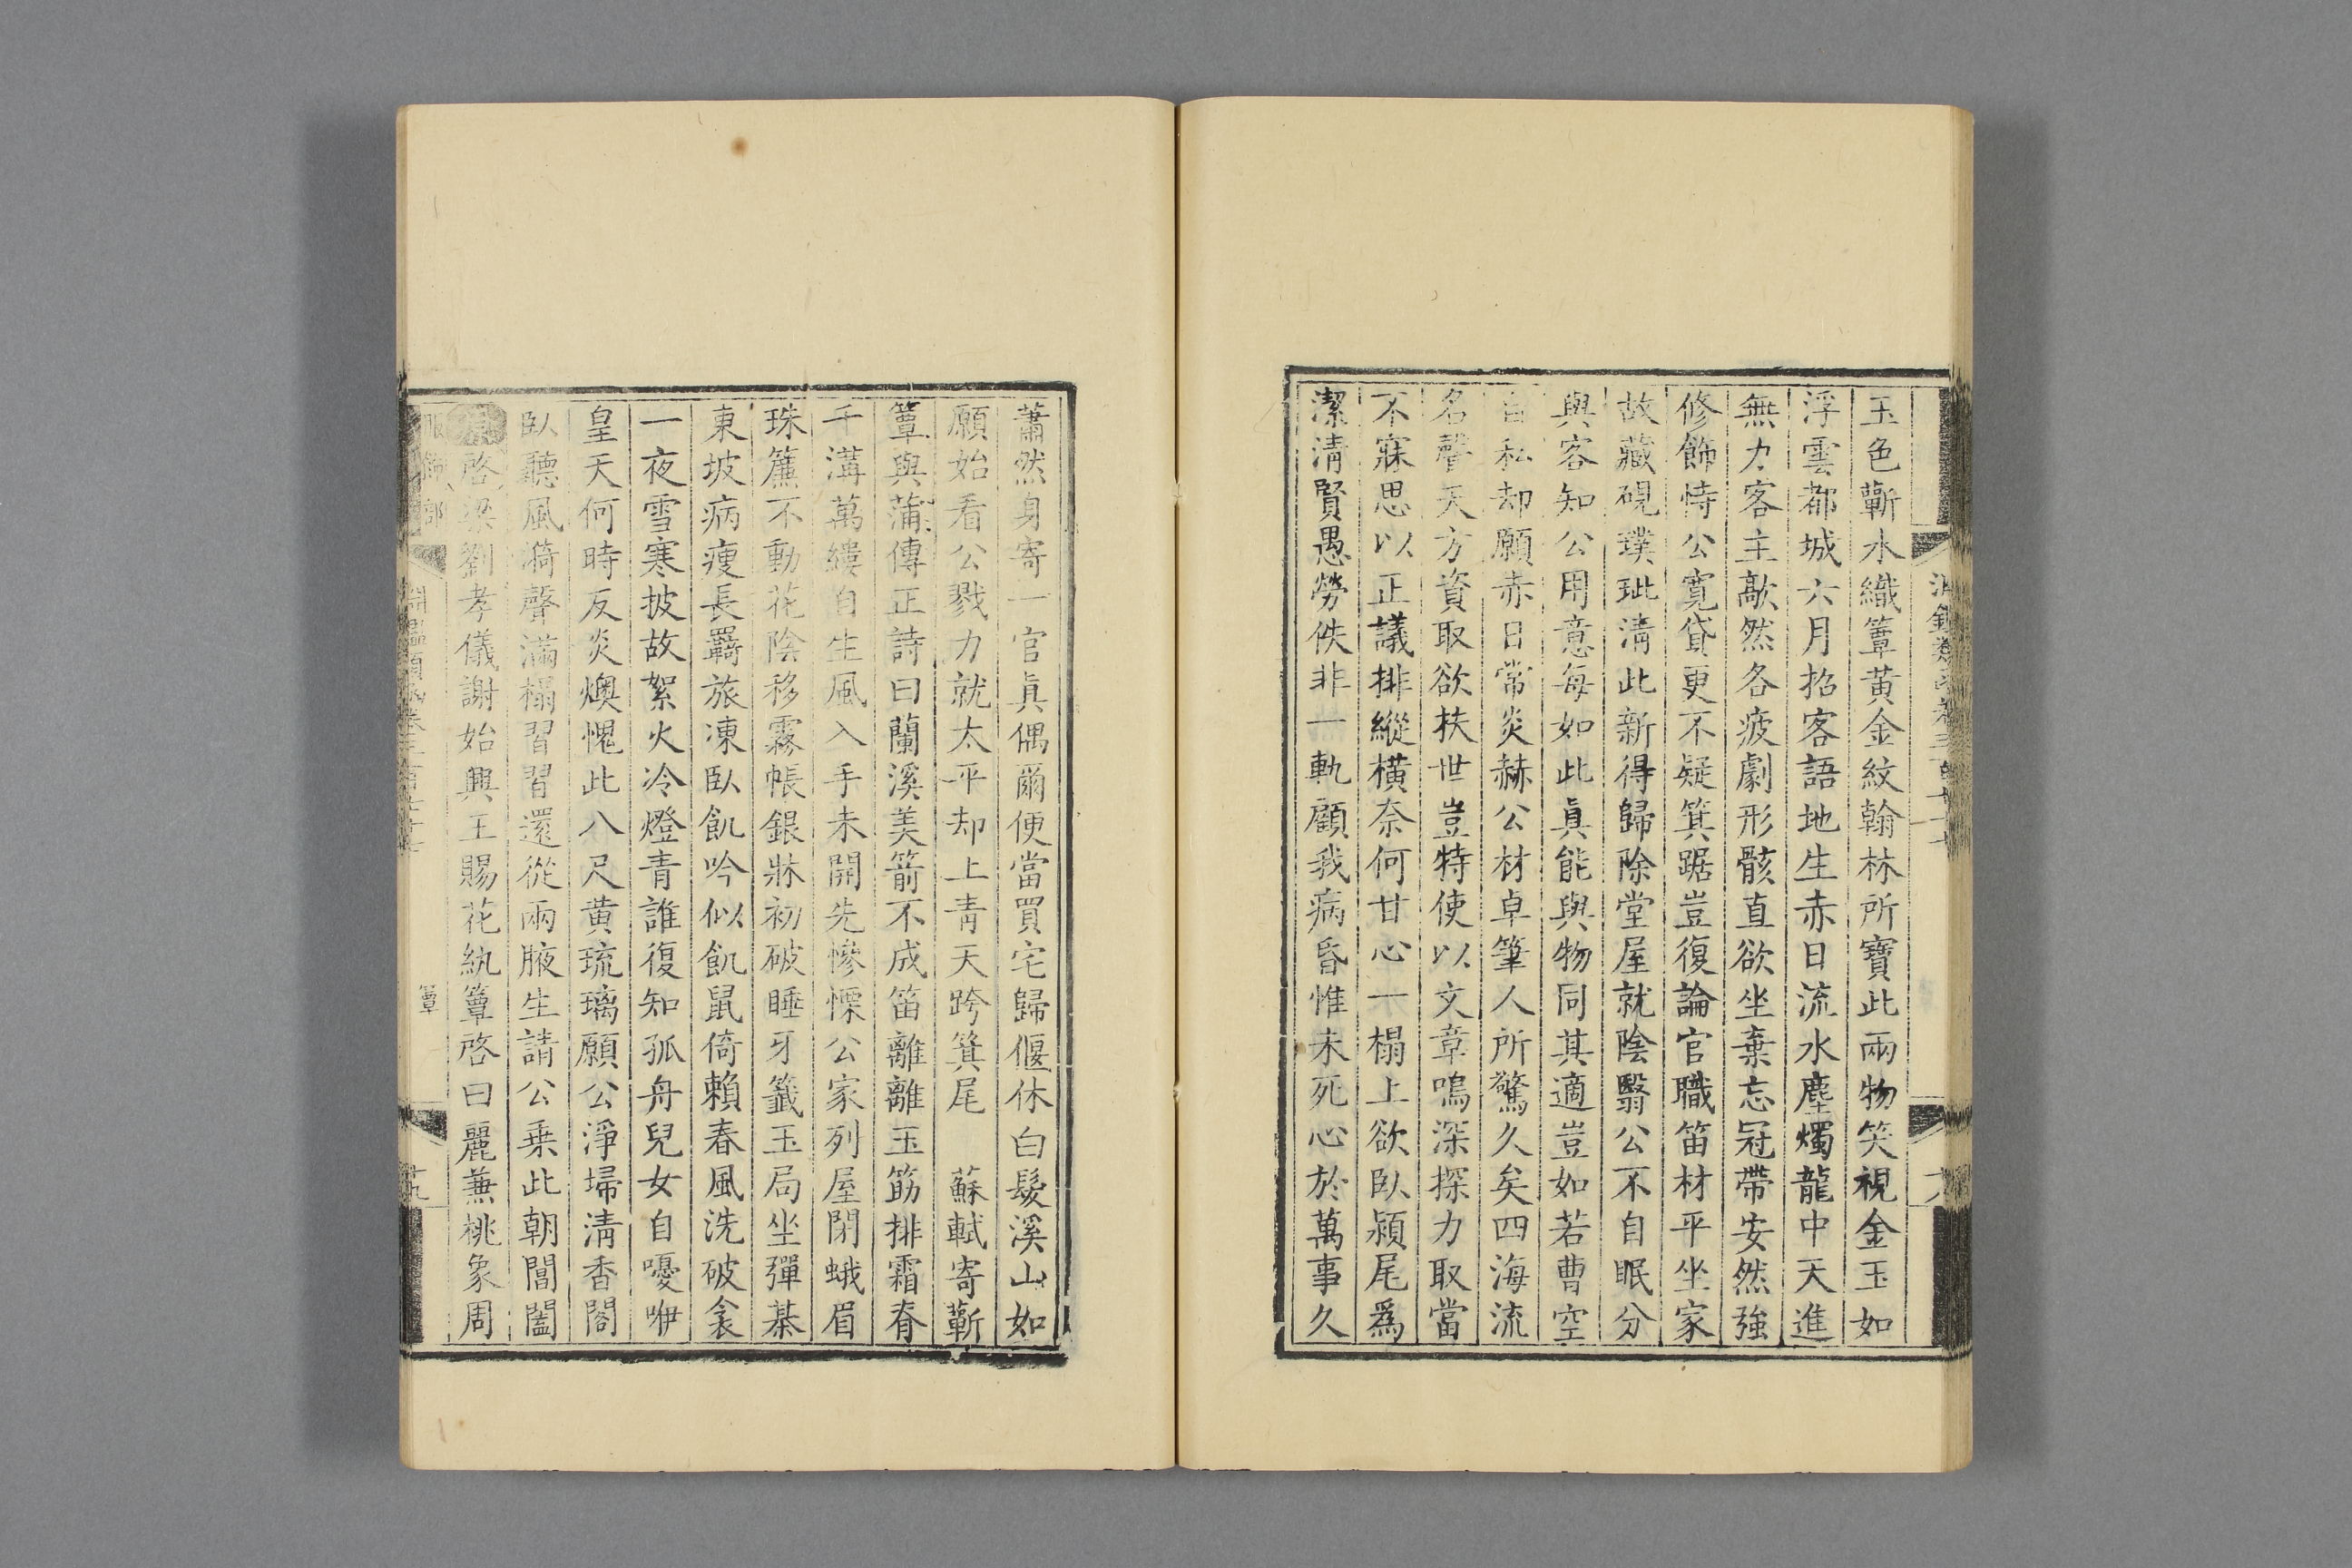 玉色蘄水織簟黃金紋翰林所寶此兩物笑視金玉如
浮雲都城六月招客語地生赤日流水塵燭龍中天進
無力客主歊然各疲劇形骸直欲坐棄忘冠帶安然強
修飾恃公寬貸更不疑箕踞豈復論官職笛材平坐家
故藏硯璞玼清此新得歸除堂屋就陰翳公不自眠分
與客知公用意每如此眞能與物同其適豈如若曹空
自私却願赤日常炎赫公材卓犖人所驚久矣四海流
名聲天方資取欲扶世豈特使以文章鳴深探力取當
不寐思以正議排縱橫奈何甘心一榻上欲臥潁尾爲
潔清賢愚勞佚非一軌顧我病昏惟未死心於萬事久
蕭然身寄一官眞偶爾便當買宅歸偃休白髮溪山如
願始看公戮力就太平却上青天跨箕尾 蘇軾寄蘄
簟與蒲傳正詩曰蘭溪美箭不成笛離離玉筯排霜脊
千溝萬縷自生風入手未開先慘慄公家列屋閉蛾眉
珠簾不動花陰移霧帳銀牀初破睡牙籤玉局坐彈棊
東坡病瘦長羇旅凍臥飢吟似飢鼠倚賴春風洗破衾
一夜雪寒披故絮火冷燈青誰復知孤舟兒女自嚘咿
皇天何時反炎燠愧此八尺黃琉璃願公淨埽清香閣
臥聽風漪聲滿榻習習還從兩腋生請公乗此朝閶闔
啓梁劉孝儀謝始興王賜花紈簟啓曰麗兼桃象周
服飾部
淵鑑類函卷三百七十七
簟
十九